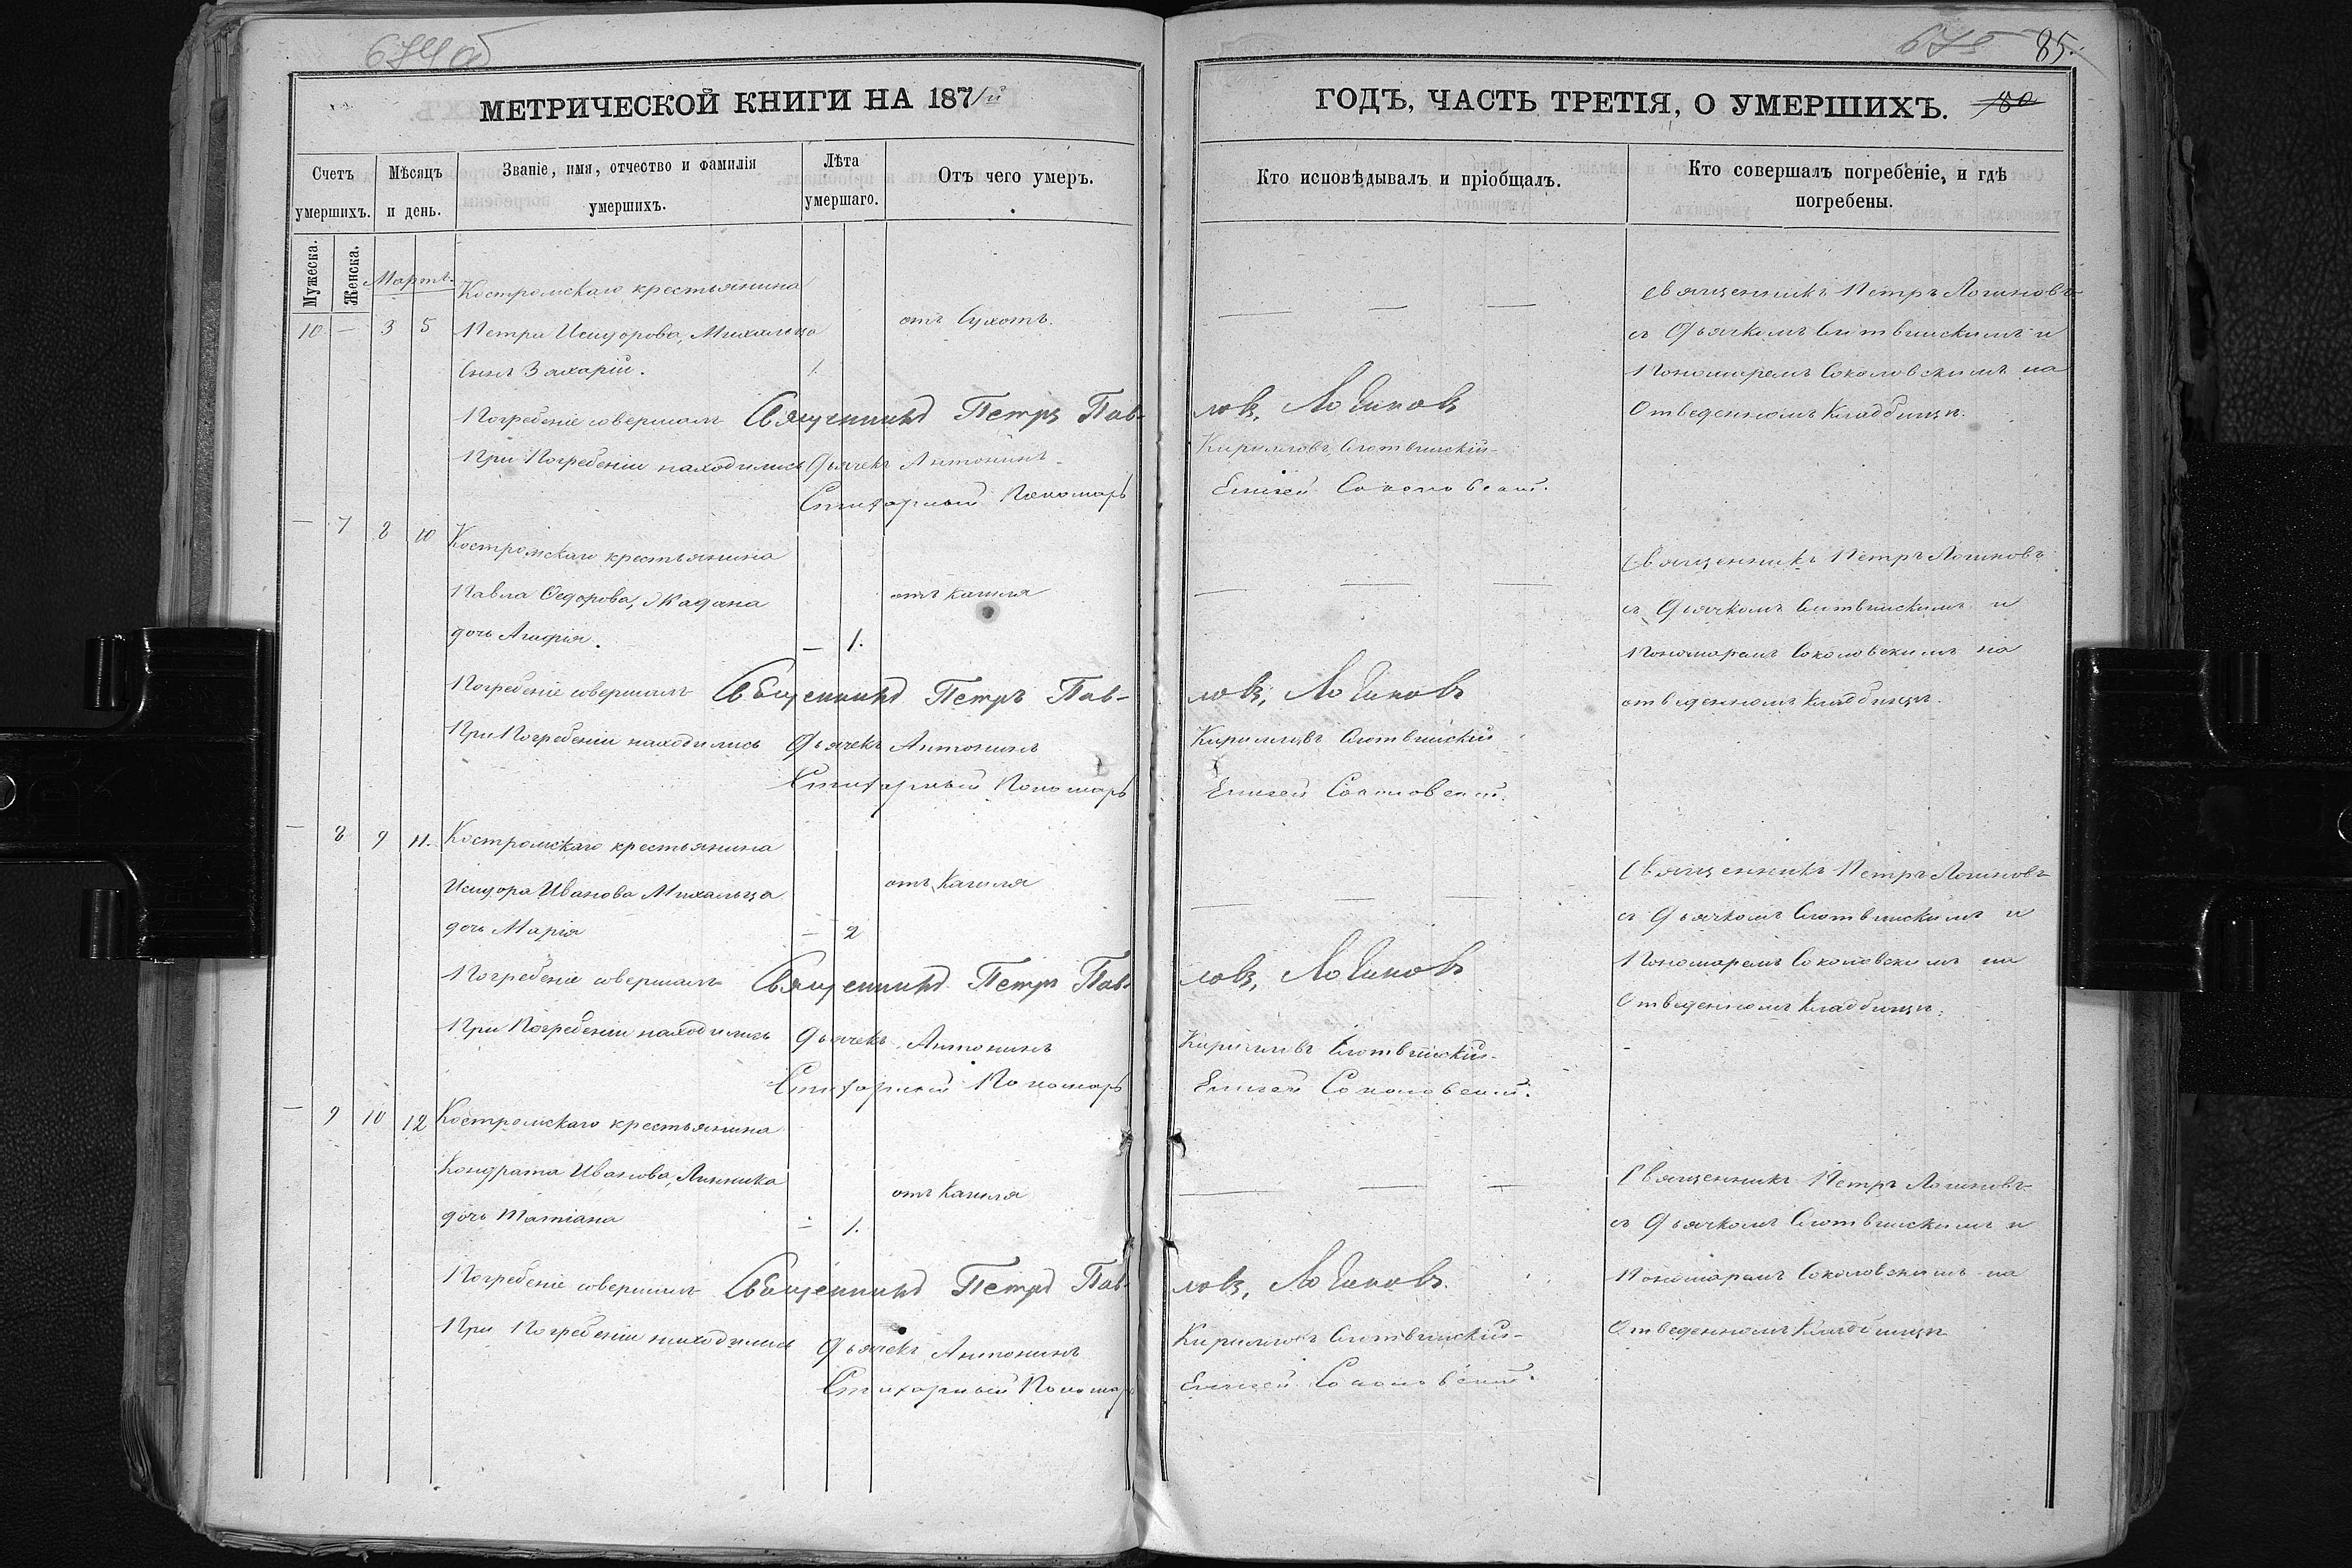 674об
МЕТРИЧЕСКОЙ КНИГИ НА 1871й
Счетъ умершихъ.
Мѣсяцъ и день.
Званіе, имя, отчество и фамилія умершихъ.
Лѣта умершаго.
Отъ чего умеръ.
Мужеска.
Женска.
Мартъ.
Костромскаго крестьянина
10 — 3 5 Петра Исидорова, Михальца отъ Сухотъ.
сынъ Захарій. 1.
Погребеніе совершалъ Священникъ Петръ Пав-
При Погребеніи находились Дьячекъ Антонинъ
Стихарный Пономарь
— 7 8 10 Костромскаго крестьянина
Павла Ѳедорова, Жадана отъ Кашля
дочь Агафія. — 1.
Погребеніе совершалъ Священникъ Петръ Пав-
При Погребеніи находились Дьячекъ Антонинъ
Стихарный Пономарь
— 8 9 11. Костромскаго крестьянина
Исидора Иванова Михальца отъ Кашля
дочь Марія — 2
Погребеніе совершалъ Священникъ Петръ Пав-
При Погребеніи находились Дьячекъ Антонинъ
Стихарный Пономарь
— 9 10 12 Костромскаго крестьянина
Кондрата Иванова, Линника отъ Кашля
дочь Татіана — 1.
Погребеніе совершалъ Священникъ Петръ Пав-
При Погребеніи находились Дьячекъ Антонинъ
Стихарный Пономарь
675 85.
ГОДЪ, ЧАСТЬ ТРЕТІЯ, О УМЕРШИХЪ. 180
Кто исповѣдывалъ и пріобщалъ.
Кто совершалъ погребеніе, и гдѣ погребены.
Священникъ Петръ Логиновъ
съ Дьячкомъ Слотвинскимъ и
Пономаремъ Соколовскимъ на
Отведенномъ Кладбищѣ.
ловъ, Логиновъ
Кирилловъ Слотвинскій
Елисей Соколовскій.
Священникъ Петръ Логиновъ
съ Дьячкомъ Слотвинскимъ и
Пономаремъ Соколовскимъ на
отведенномъ Кладбищѣ.
ловъ, Логиновъ
Кирилловъ Слотвинскій
Елисей Соколовскій.
Священникъ Петръ Логиновъ
съ Дьячкомъ Слотвинскимъ и
Пономаремъ Соколовскимъ на
Отведенномъ Кладбищѣ.
ловъ, Логиновъ
Кирилловъ Слотвинскій
Елисей Соколовскій.
Священникъ Петръ Логиновъ
съ Дьячкомъ Слотвинскимъ и
Пономаремъ Соколовскимъ на
Отведенномъ Кладбищѣ
ловъ, Логиновъ.
Кирилловъ Слотвинскій
Елисей Соколовскій.